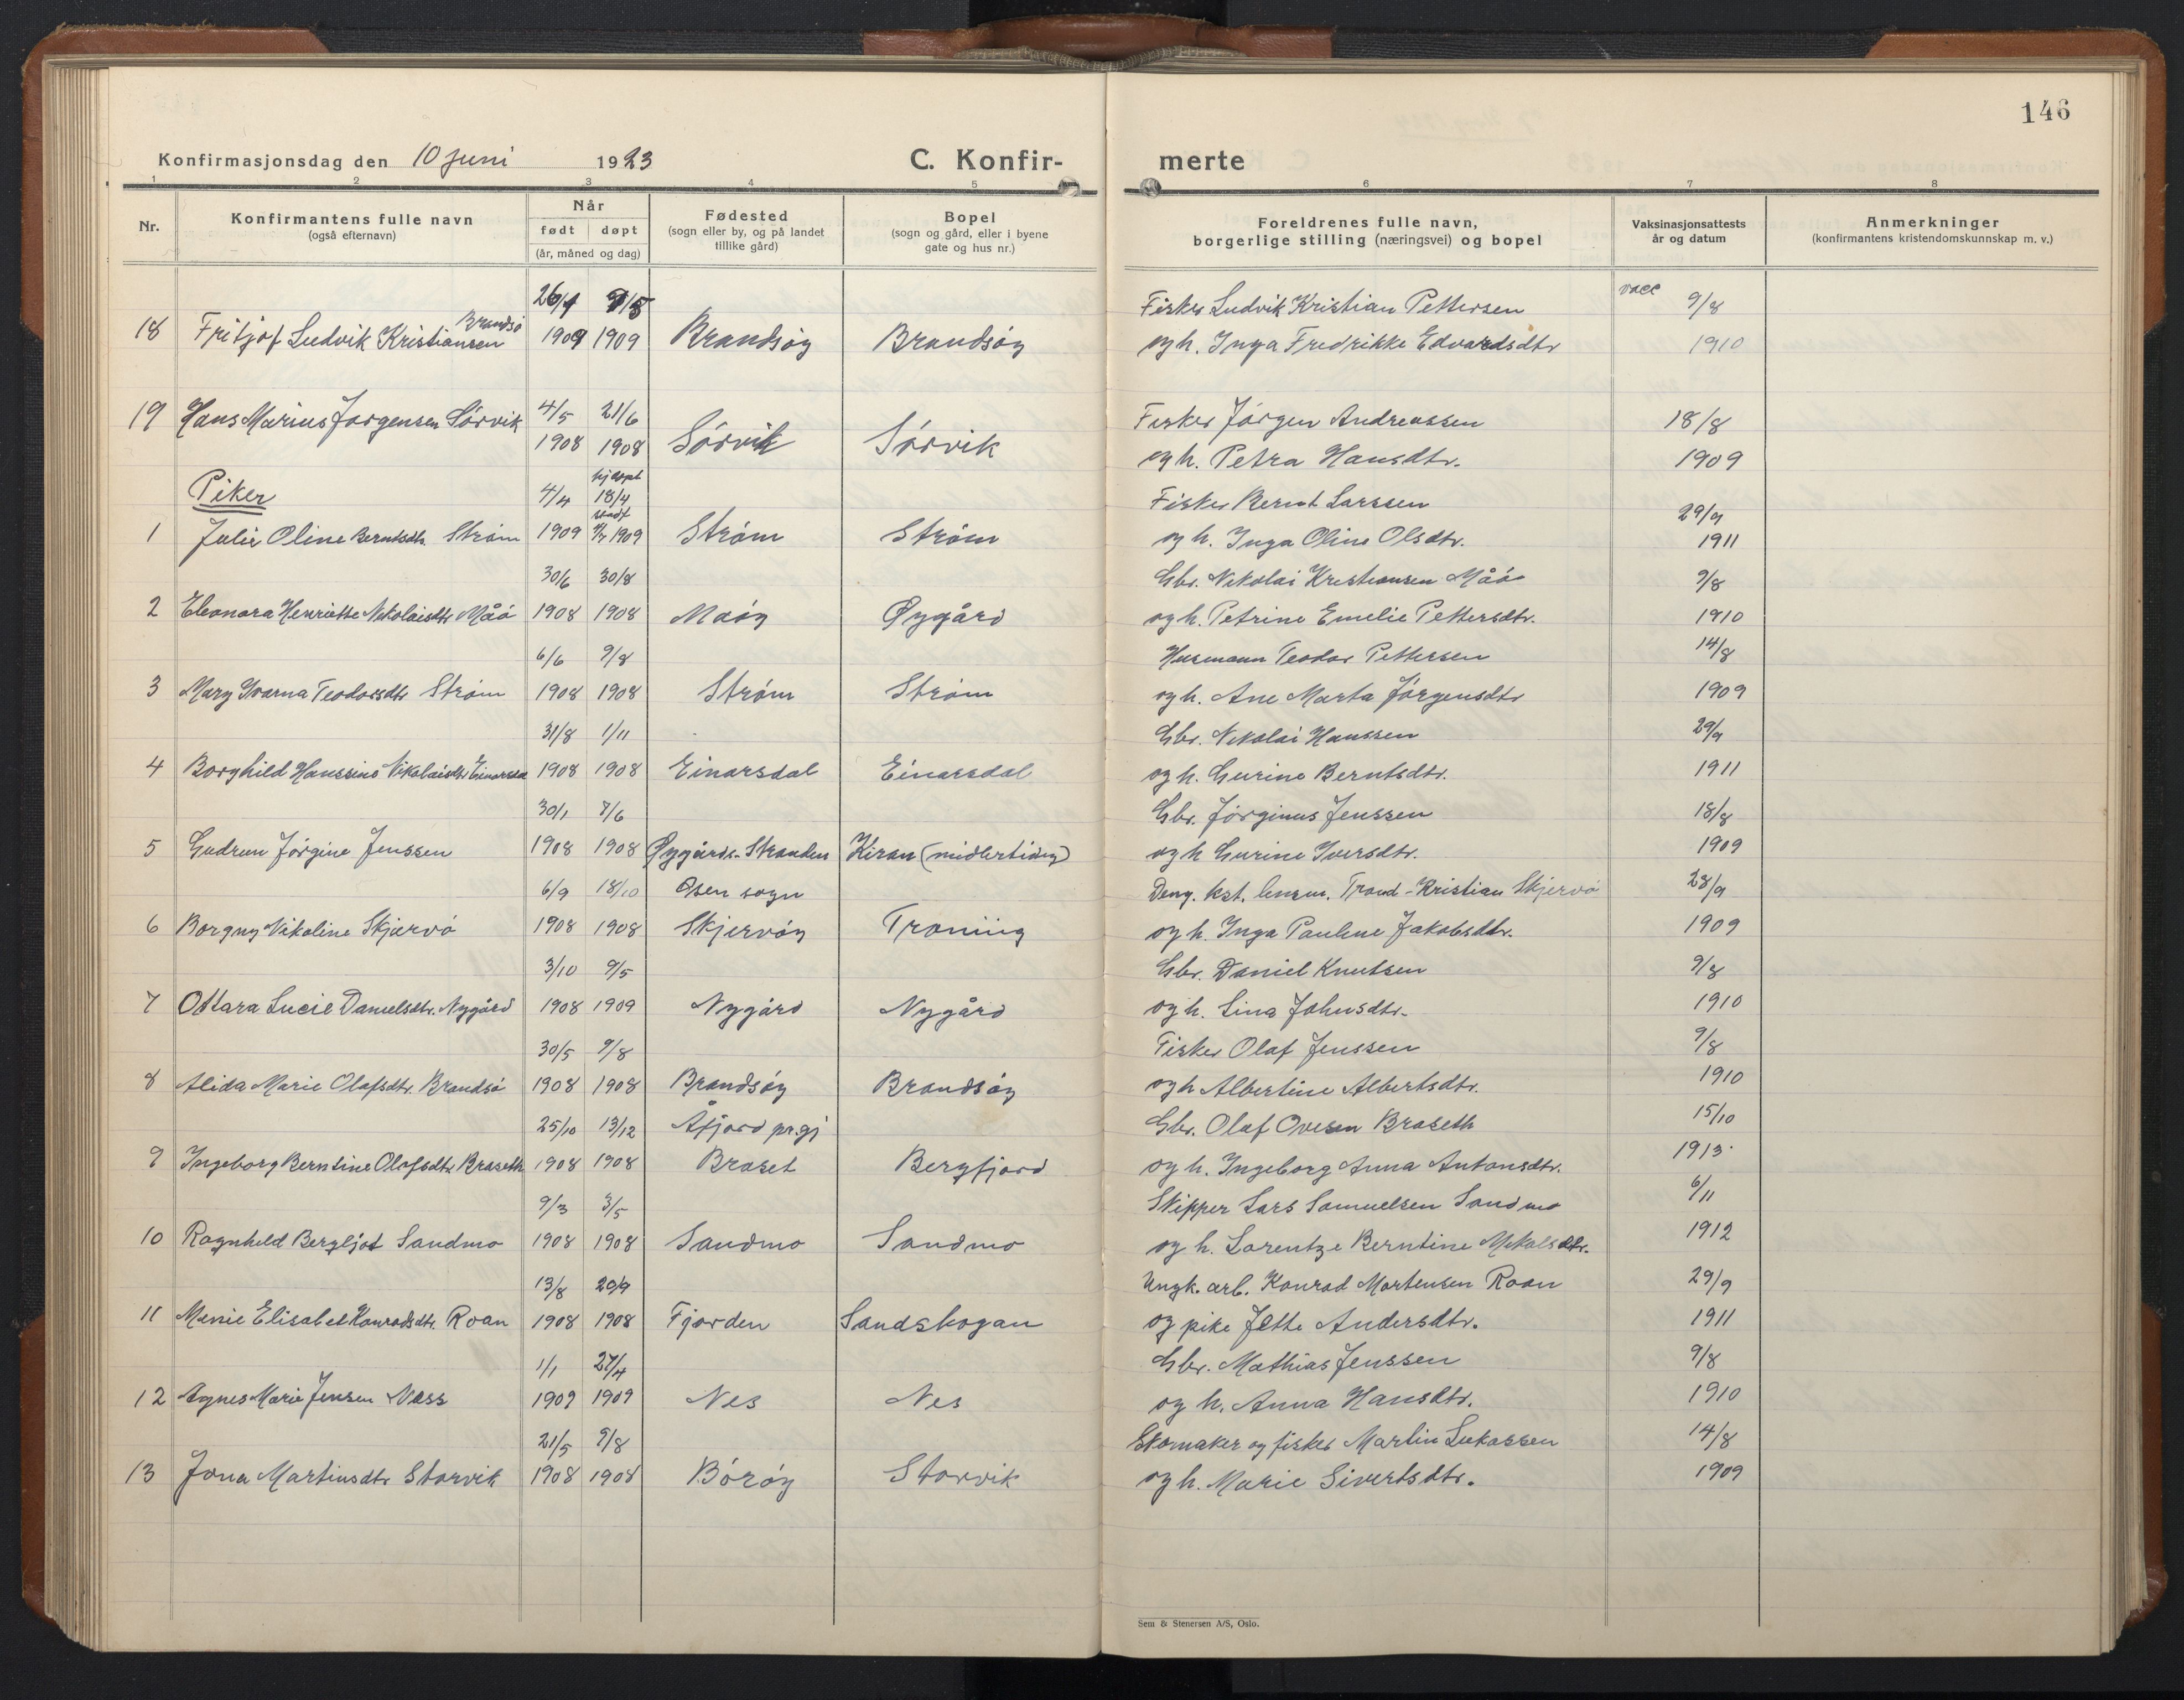 146
Konfirmasjonsdag den 10 Juni 1923 C. Konfir- merte
1 2 3 4 5 6 7 8
Nr. Konfirmantens fulle navn (også efternavn) Når født døpt (år, måned og dag) Fødested (sogn eller by, og på landet tillike gård) Bopel (sogn og gård, eller i byene gate og hus nr.) Foreldrenes fulle navn, borgerlige stilling (næringsvei) og bopel Vaksinasjonsattests år og datum Anmerkninger (konfirmantens kristendomskunnskap m. v.)
26/1 9/5 Fisker Ludvik Kristian Pettersen vacc 9/8
Brandsø
18 Fritjof Ludvik Kristiansen 1909 1909 Brandsøy Brandsøy og h. Inga Fredrikke Edvardsdtr 1910
19 Hans Marius Jørgensen Sørvik 4/5 21/6 Fisker Jørgen Andreassen 18/8
1908 1908 Sørvik Sørvik og h. Petra Hansdtr. 1909
Piker 4/4 hjdøpt 18/4 Fisker Bernt Larssen 29/9
stadf
1 Julie Oline Berntsdtr. Strøm 1909 1909 Strøm Strøm og h. Inga Oline Olsdtr. 1911
30/6 30/8 Gbr. Nikolai Kristiansen Måø 9/8
2 Eleonora Henriette Nikolaisdtr Måø 1908 1908 Maøy Øygård og h. Petrine Emelie Pettersdtr. 1910
6/6 9/8 Husmann Teodor Pettersen 14/8
3 Mary Ivarna Teodorsdtr Strøm 1908 1908 Strøm Strøm og h. Ane Marta Jørgensdtr 1909
31/8 1/11 Gbr. Nikolai Hanssen 29/9
4 Borghild Hanssine Nikolaisdtr Einarsdal 1908 1908 Einarsdal Einarsdal og h. Gurine Berntsdtr. 1911
30/1 8/6 Gbr. Jørginus Jenssen 18/8
5 Gudrun Jørgine Jenssen 1908 1908 Øygårds-Stranden Kiran (midlertidig) og h Gurine Iversdtr. 1909
6/9 18/10 Osen sogn Deng. kst. lensm. Trond-Kristian Skjervø 28/9
6 Borgny Nikoline Skjærvø 1908 1908 Skjervøy Troning og h. Inga Pauline Jakobsdtr. 1909
3/10 9/5 Gbr. Daniel Knutsen 9/8
7 Ottara Lucie Danielsdtr. Nygård 1908 1909 Nygård Nygård og h. Lina Johnsdtr. 1910
30/5 9/8 Fisker Olaf Jenssen 9/8
8 Alida Marie Olafsdtr. Brandsø 1908 1908 Brandsøy Brandsøy og h Albertine Albertsdtr. 1910
25/10 13/12 Åfjord pr.gj Gbr. Olaf Ovesen Braseth 15/10
9 Ingeborg Berntine Olafsdtr Braseth 1908 1908 Braset Bergfjord og h. Ingeborg Anna Antonsdtr. 1913
9/3 3/5 Skipper Lars Samuelsen Sandmo 6/11
10 Ragnhild Bergljot Sandmo 1908 1908 Sandmo Sandmo og h. Lorentze Berntine Nikolsdtr. 1912
13/8 20/9 Ungk. arb. Konrad Mortensen Roan 29/9
11 Menie Elisabet Konradsdtr. Roan 1908 1908 Fjorden Sandskogan og pike Jette Andersdtr. 1911
1/1 27/4 Gbr. Mathias Jenssen 9/8
12 Agnes Marie Jensen Næss 1909 1909 Nes Nes og h. Anna Hansdtr. 1910
21/5 9/8 Skomaker og fisker Martin Lukassen 14/8
13 Jona Martinsdtr Storvik 1908 1908 Børøy Storvik og h. Marie Sivertsdtr. 1909
Sem & Stenersen A/S, Oslo.